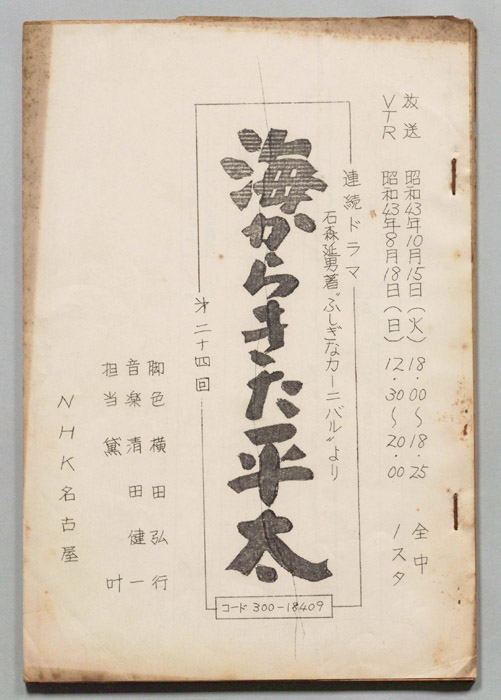 放送 昭和43年10月15日(火) 18.00〜18.25 全中
VTR 昭和43年8月18日(日) 12.30〜20.00 1スタ
連続ドラマ
石森延男著“ふしぎなカーニバル”より
海からきた平太
コード 300-18409
第二十四回
脚色 横田弘行
音楽 清田健一
担当 黛叶
NHK名古屋